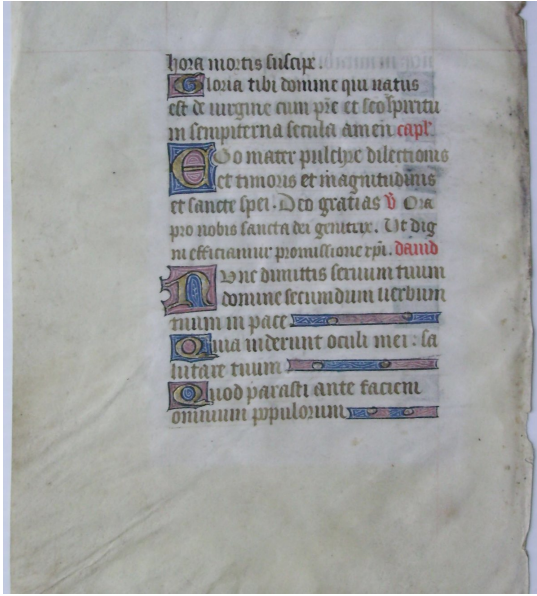 hora mortis suscipe.
Gloria tibi domine qui natus
est de virgine cum pre et sco spiritu
in sempiterna secula amen capl'.
EGo mater pulchre dilectionis
et timoris et magnitudinis
et sancte spei. Deo gratias V Ora
pro nobis sancta dei genitrix. Ut dig
ni efficiamur promissione xpi. david
NUnc dimittis servum tuum
domine secundum verbum
tuum in pace
Quia viderunt oculi mei: sa
lutare tuum
Quod parasti ante faciem
omnium populorum